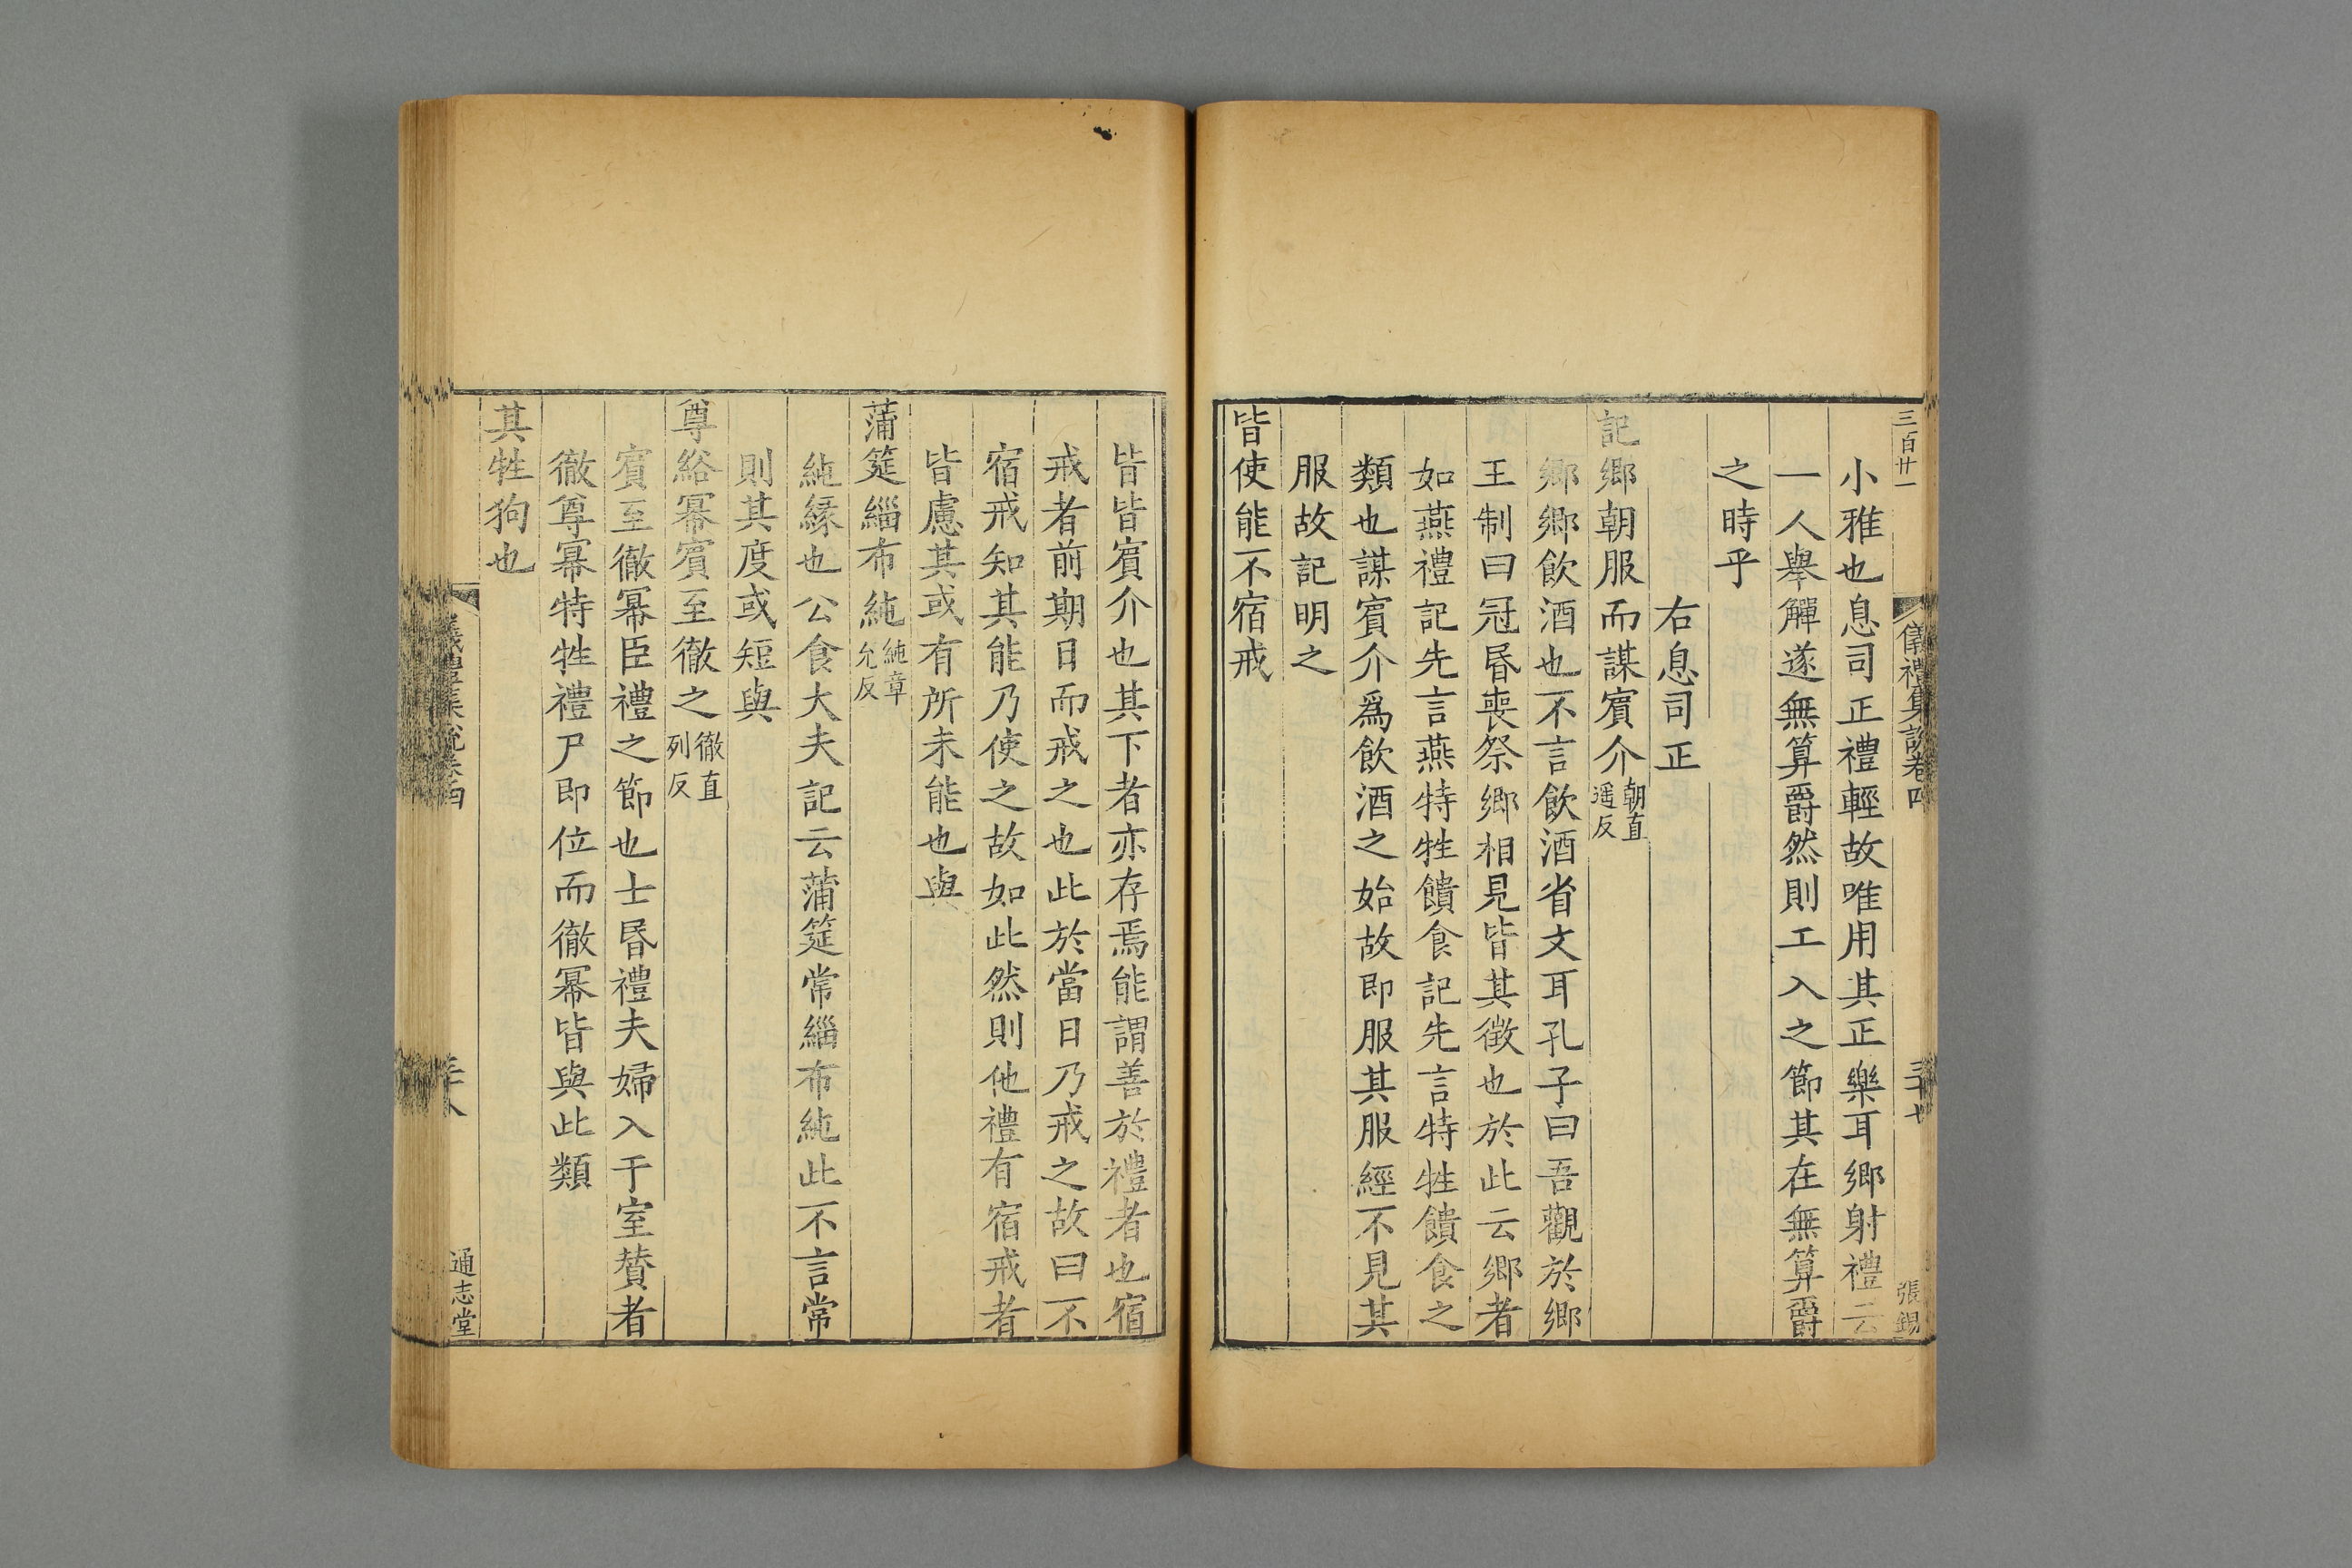 三百廿一
儀禮集說卷四
三十七
張錫
小雅也息司正禮輕故唯用其正樂耳鄉射禮云
一人舉觶遂無算爵然則工入之節其在無算爵
之時乎
右息司正
記鄉朝服而謀賓介朝直遥反
鄉鄉飲酒也不言飲酒省文耳孔子曰吾觀於鄉
王制曰冠昬喪祭鄉相見皆其徵也於此云鄉者
如燕禮記先言燕特牲饋食記先言特牲饋食之
類也謀賓介爲飲酒之始故即服其服經不見其
服故記明之
皆使能不宿戒
皆皆賓介也其下者亦存焉能謂善於禮者也宿
戒者前期日而戒之也此於當日乃戒之故曰不
宿戒知其能乃使之故如此然則他禮有宿戒者
皆慮其或有所未能也與
蒲筵緇布純純章允反
純緣也公食大夫記云蒲筵常緇布純此不言常
則其度或短與
尊綌冪賓至徹之徹直列反
賓至徹冪臣禮之節也士昬禮夫婦入于室贊者
徹尊冪特牲禮尸即位而徹冪皆與此類
其牲狗也
儀禮集說卷四
三十八
通志堂